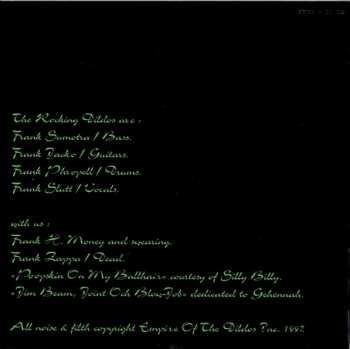 The Rocking Dildos are :
Frank Sumatra / Bass.
Frank Zacko / Guitars.
Frank Phropell / Drums.
Frank Slutt / Vocals.
with us :
Frank H. Money and swearing.
Frank Zappa / Dead.
«Poopskin On My Ballhair» courtesy of Silly Billy.
«Jim Beam, Joint Och Blow-Job» dedicated to Gehennah.
All noise & filth copyright Empire Of The Dildos Inc. 1997.